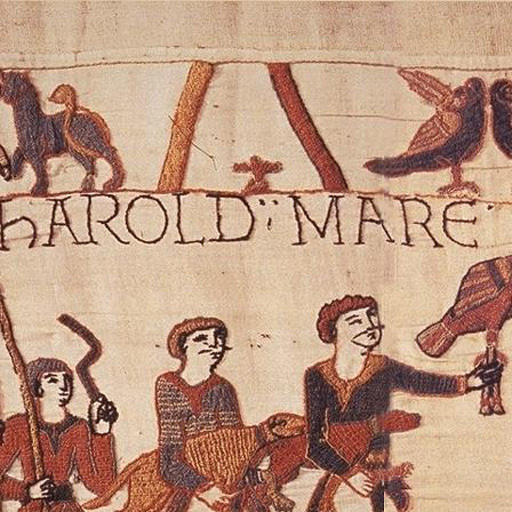 hAROLD ∵ MARE ·